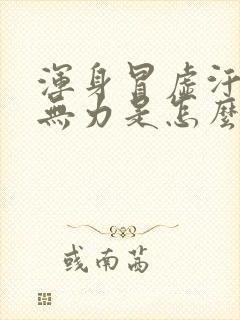 渾身冒虛汗
無力是怎麼
彧南茜